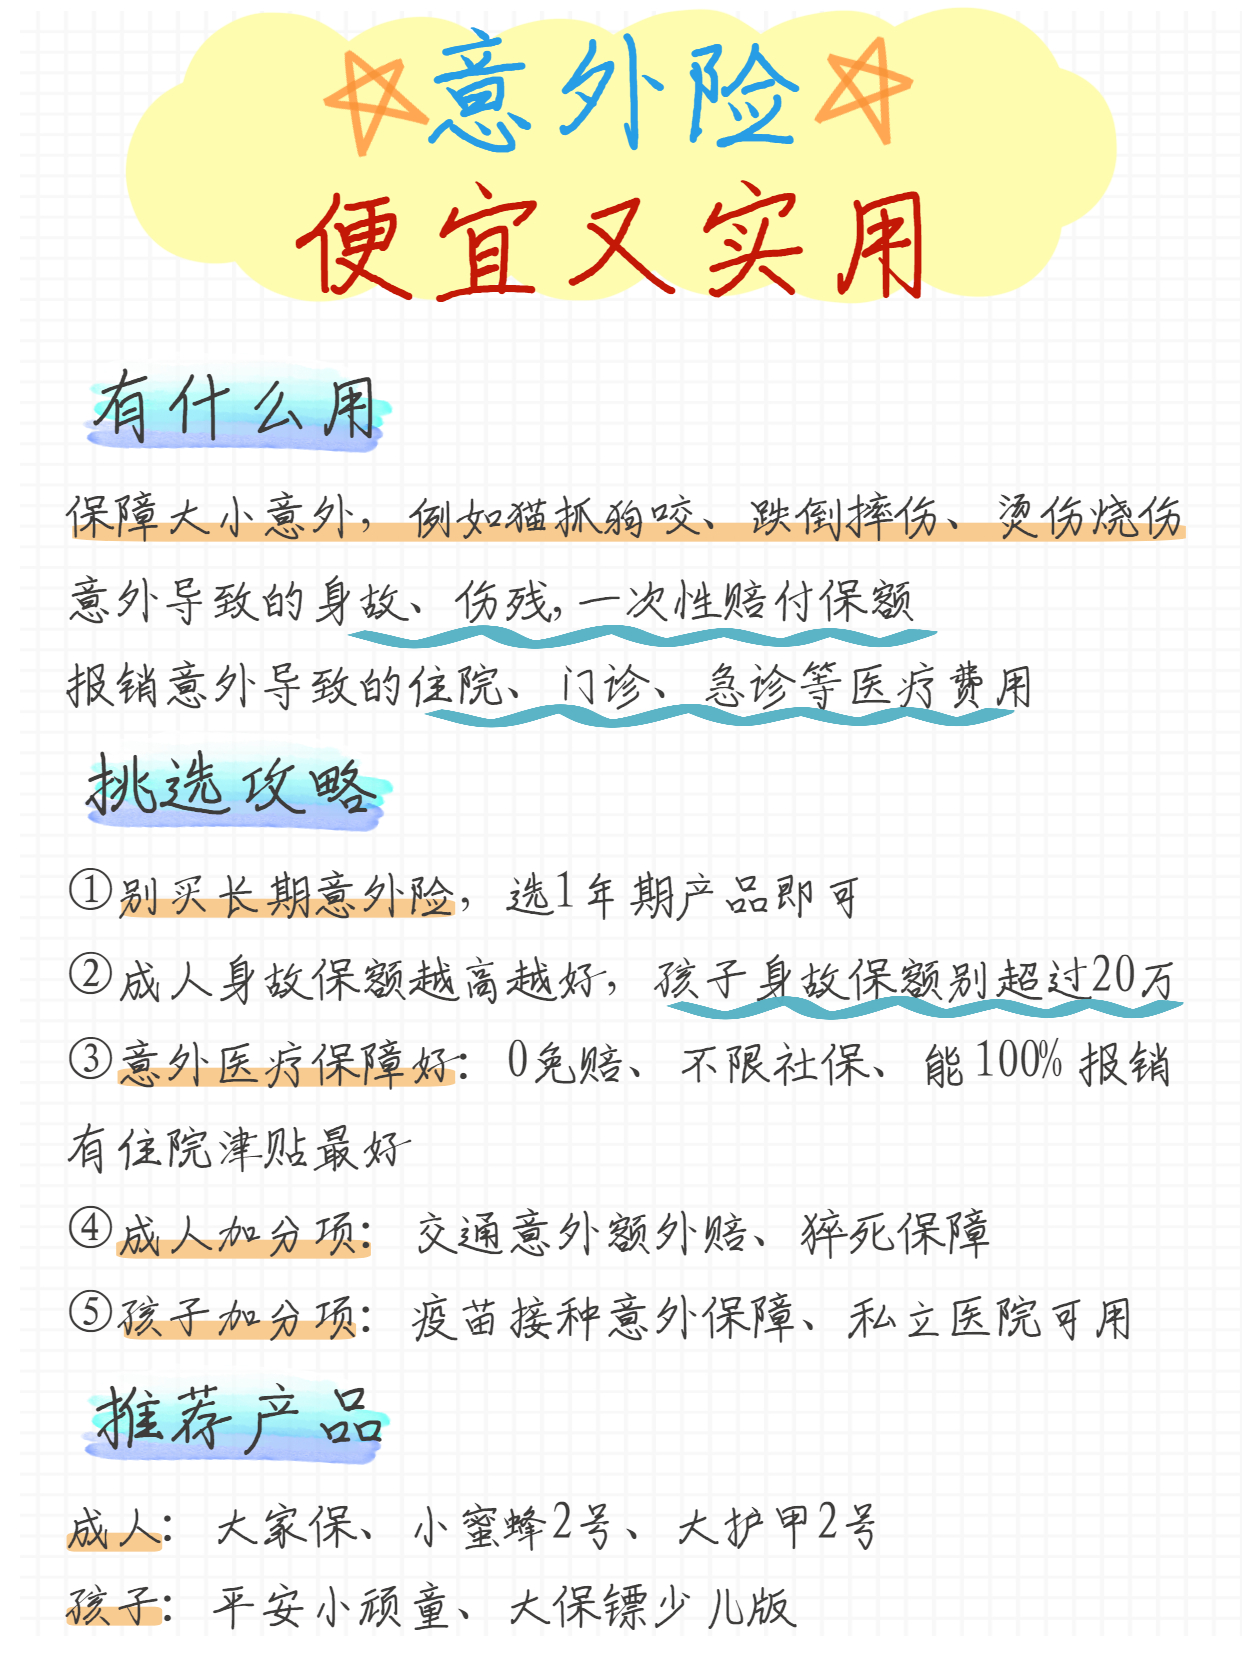 意外险
便宜又实用
有什么用
保障大小意外，例如猫抓狗咬、跌倒摔伤、烫伤烧伤
意外导致的身故、伤残，一次性赔付保额
报销意外导致的住院、门诊、急诊等医疗费用
挑选攻略
①别买长期意外险，选1年期产品即可
②成人身故保额越高越好，孩子身故保额别超过20万
③意外医疗保障好：0免赔、不限社保、能100%报销
有住院津贴最好
④成人加分项：交通意外额外赔、猝死保障
⑤孩子加分项：疫苗接种意外保障、私立医院可用
推荐产品
成人：大家保、小蜜蜂2号、大护甲2号
孩子：平安小顽童、大保镖少儿版